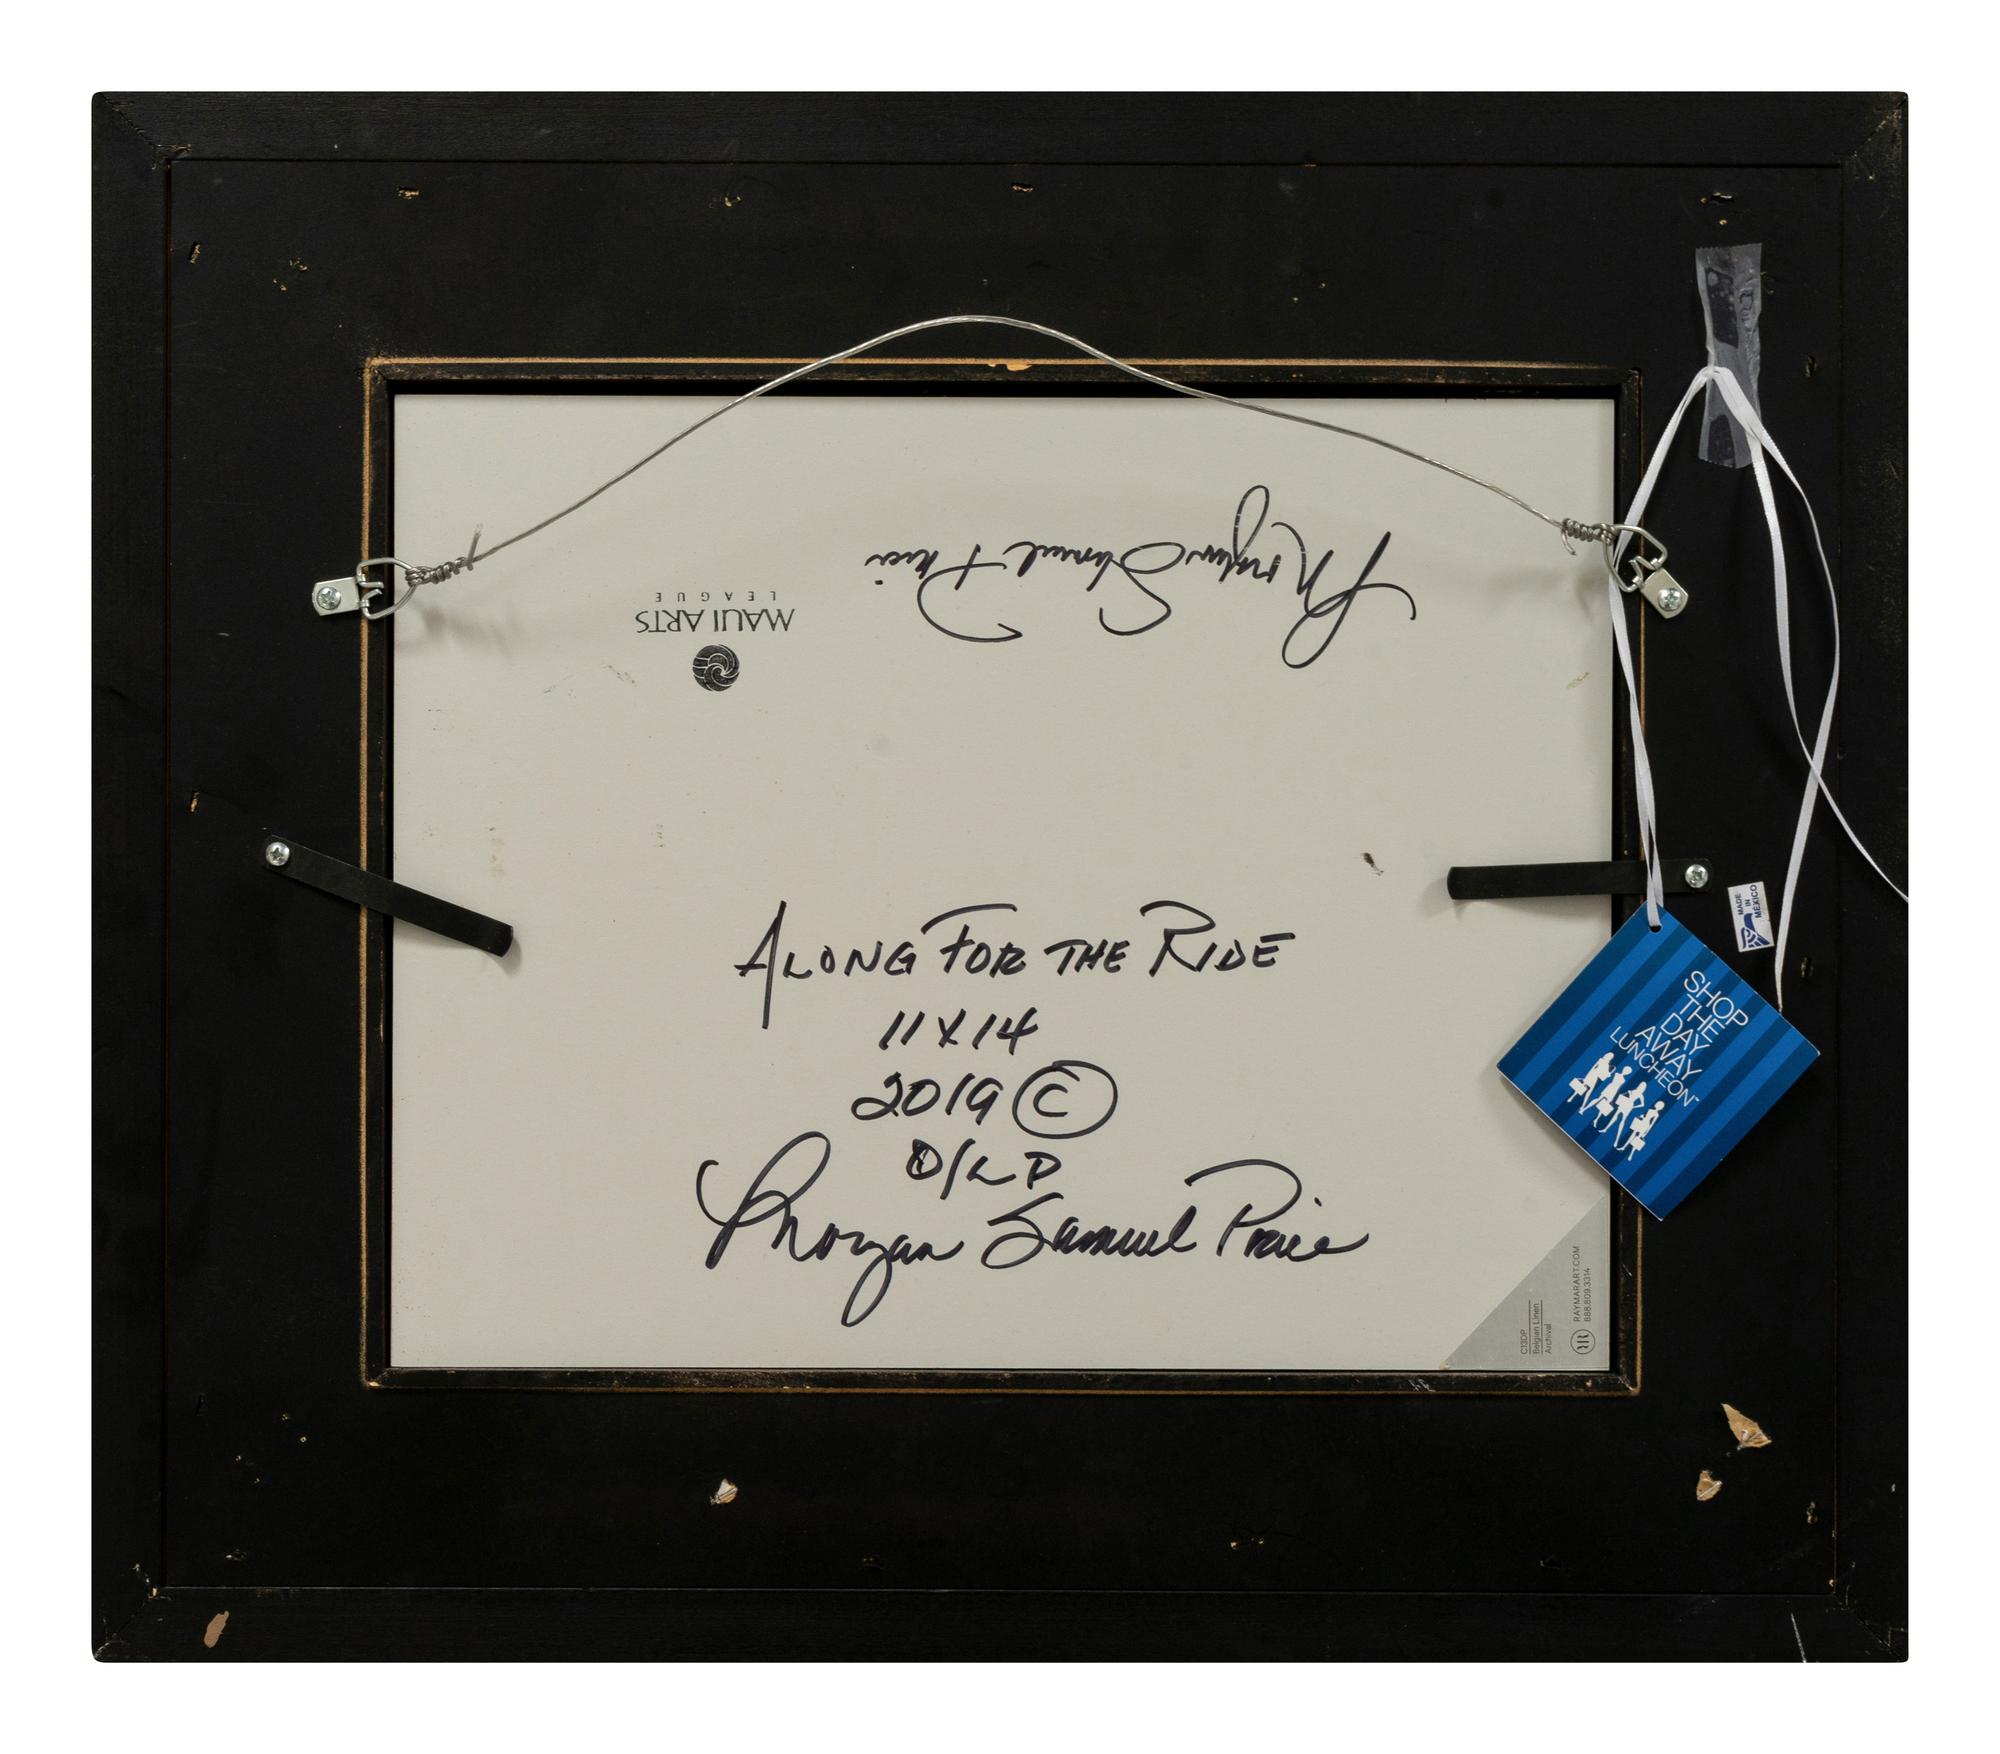 Morgan Samuel Price
MAUI ARTS
LEAGUE
ALONG FOR THE RIDE
11X14
2019 ©
O/LP
Morgan Samuel Price
MADE
IN
MEXICO
SHOP
THE
DAY
AWAY
LUNCHEON™
C13DP
Belgian Linen
Archival
RAYMARART.COM
888.809.3314